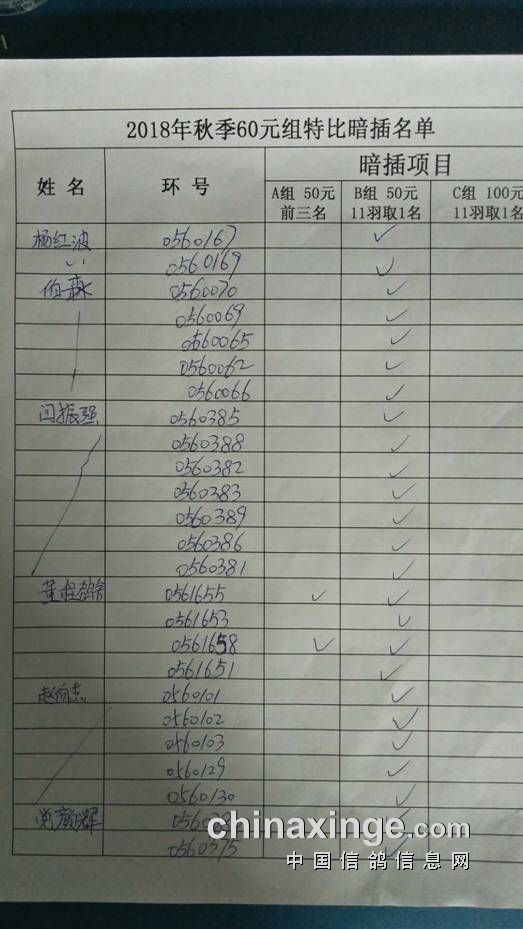 2018年秋季60元组特比暗插名单
姓 名 环 号 暗插项目
A组 50元 B组 50元 C组 100元
前三名 11羽取1名 11羽取1名
杨红波 0560167 ✓
0560169 ✓
伯森 0560070 ✓
0560069 ✓
0560065 ✓
0560062 ✓
0560066 ✓
闫振强 0560385 ✓
0560388 ✓
0560382 ✓
0560383 ✓
0560389 ✓
0560386 ✓
0560381 ✓
0561655 ✓ ✓
0561653 ✓
0561658 ✓ ✓
0561651 ✓
赵向志 0560101 ✓
0560102 ✓
0560103 ✓
0560129 ✓
0560130 ✓
颜辉
0560375
chinaxinge.com
中国信鸽信息网